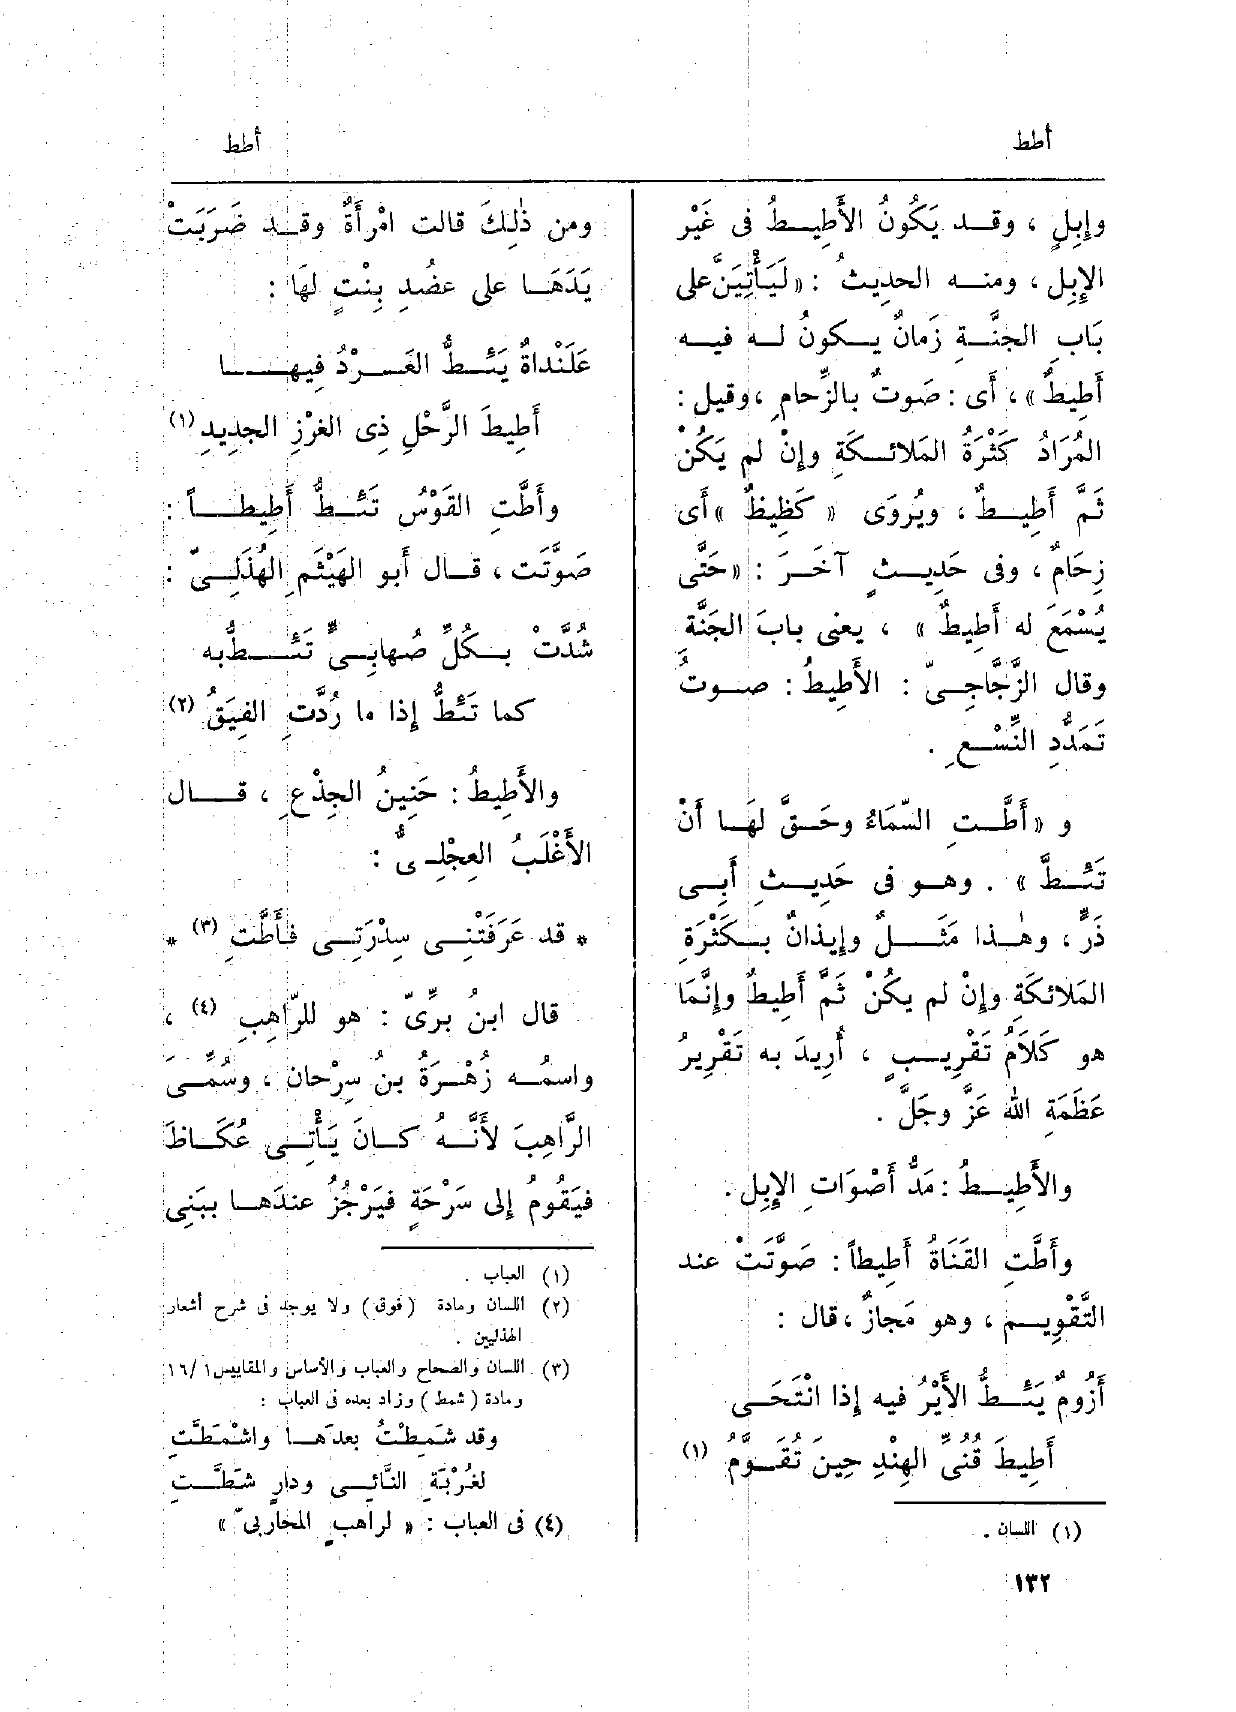 أطط
أطط
وإِبِلٍ ، وقـد يَكُونُ الأَطِيـطُ فى غَيْرِ
الإِبِلِ ، ومنـه الحدِيثُ : « لَيَأْتِيَنَّ على
بَابِ الجنَّـةِ زَمانٌ يـكونُ لـه فيـه
أَطِيطٌ » ، أى : صَوتٌ بالزِّحامِ ، وقيل :
المُرَادُ كَثْرَةُ المَلائـكَةِ وإِنْ لم يَكُنْ
ثَمَّ أَطِيـطٌ ، ويُرْوَى « كَظِيظٌ » أى
زِحَامٌ ، وفى حَدِيـثٍ آخَـرَ : « حَتَّى
يُسْمَعَ له أَطِيطٌ » ، يعنى بابَ الجَنَّةِ
وقال الزَّجّاجِـىّ : الأَطِيطُ : صـوتُ
تَمَدُّدِ النِّسْـعِ .
و « أَطَّـتِ السّمَاءُ وحَـقَّ لَهَـا أَنْ
تَئِـطَّ » . وهـو فى حَدِيـثِ أَبِـى
ذَرٍّ ، وهٰـذا مَثَـلٌ وإِيذانٌ بـكَثْرَةِ
المَلائكَةِ وإِنْ لم يكُنْ ثَمَّ أَطِيطٌ وإِنَّمَا
هو كَلَامُ تَقْرِيـبٍ ، أُرِيدَ به تَقْرِيرُ
عَظَمَةِ اللهِ عَزَّ وجَلَّ .
والأَطِيـطُ : مَدُّ أَصْوَاتِ الإِبِلِ .
وأَطَّتِ القَنَاةُ أَطِيطاً : صَوَّتَتْ عند
التَّقْوِيـمِ ، وهو مَجازٌ ، قال :
أَزُومٌ يَئِـطُّ الأَيْرُ فيه إِذا انْتَحَى
أَطِيطَ قُنُىِّ الهِنْدِ حِينَ تُقَـوَّمُ (١)
(١) اللسان .
ومن ذٰلِكَ قالت امْرأَةٌ وقـد ضَرَبَتْ
يَدَهَـا على عضُدِ بِنْتٍ لَهَا :
عَلَنْداةٌ يَئِـطُّ العَـرْدُ فِيهـا
أَطِيطَ الرَّحْلِ ذِى الغَرْزِ الجَدِيدِ (١)
وأَطَّتِ القَوْسُ تَئِـطُّ أَطِيطـاً :
صَوَّتَت ، قـال أَبو الهَيْثَمِ الهُذَلِـىّ :
شُدَّتْ بـكُلِّ صُهابِـىٍّ تَئِـطُّ به
كما تَئِطُّ إِذا ما رُدَّتِ الفِيَقُ (٢)
والأَطِيطُ : حَنِينُ الجِذْعِ ، قـال
الأَغْلَبُ العِجْلِـىُّ :
* قد عَرَفَتْنِـى سِدْرَتِـى فأَطَّتِ (٣) *
قال ابنُ بَرِّىّ : هو للرّاهِبِ (٤) ،
واسمُـه زُهْـرَةُ بن سِرْحان ، وسُمِّـىَ
الرَّاهِبَ لأَنَّـهُ كـانَ يَأْتِـى عُكَـاظَ
فيَقُومُ إِلى سَرْحَةٍ فيَرْجُزُ عندَهـا ببَنِى
(١) العباب .
(٢) اللسان ومادة (فوق) ولا يوجد فى شرح أشعار
الهذليين .
(٣) اللسان والصحاح والعباب والأساس والمقاييس ١/ ١٦
ومادة (شمط) وزاد بعده فى العباب :
وقد شَمِطْتُ بعدَهـا واشْمَطَّتِ
لغُرْبَةِ النَّائِـى ودارٍ شَطَّـتِ
(٤) فى العباب : « لراهبٍ المحاربىّ »
١٣٢